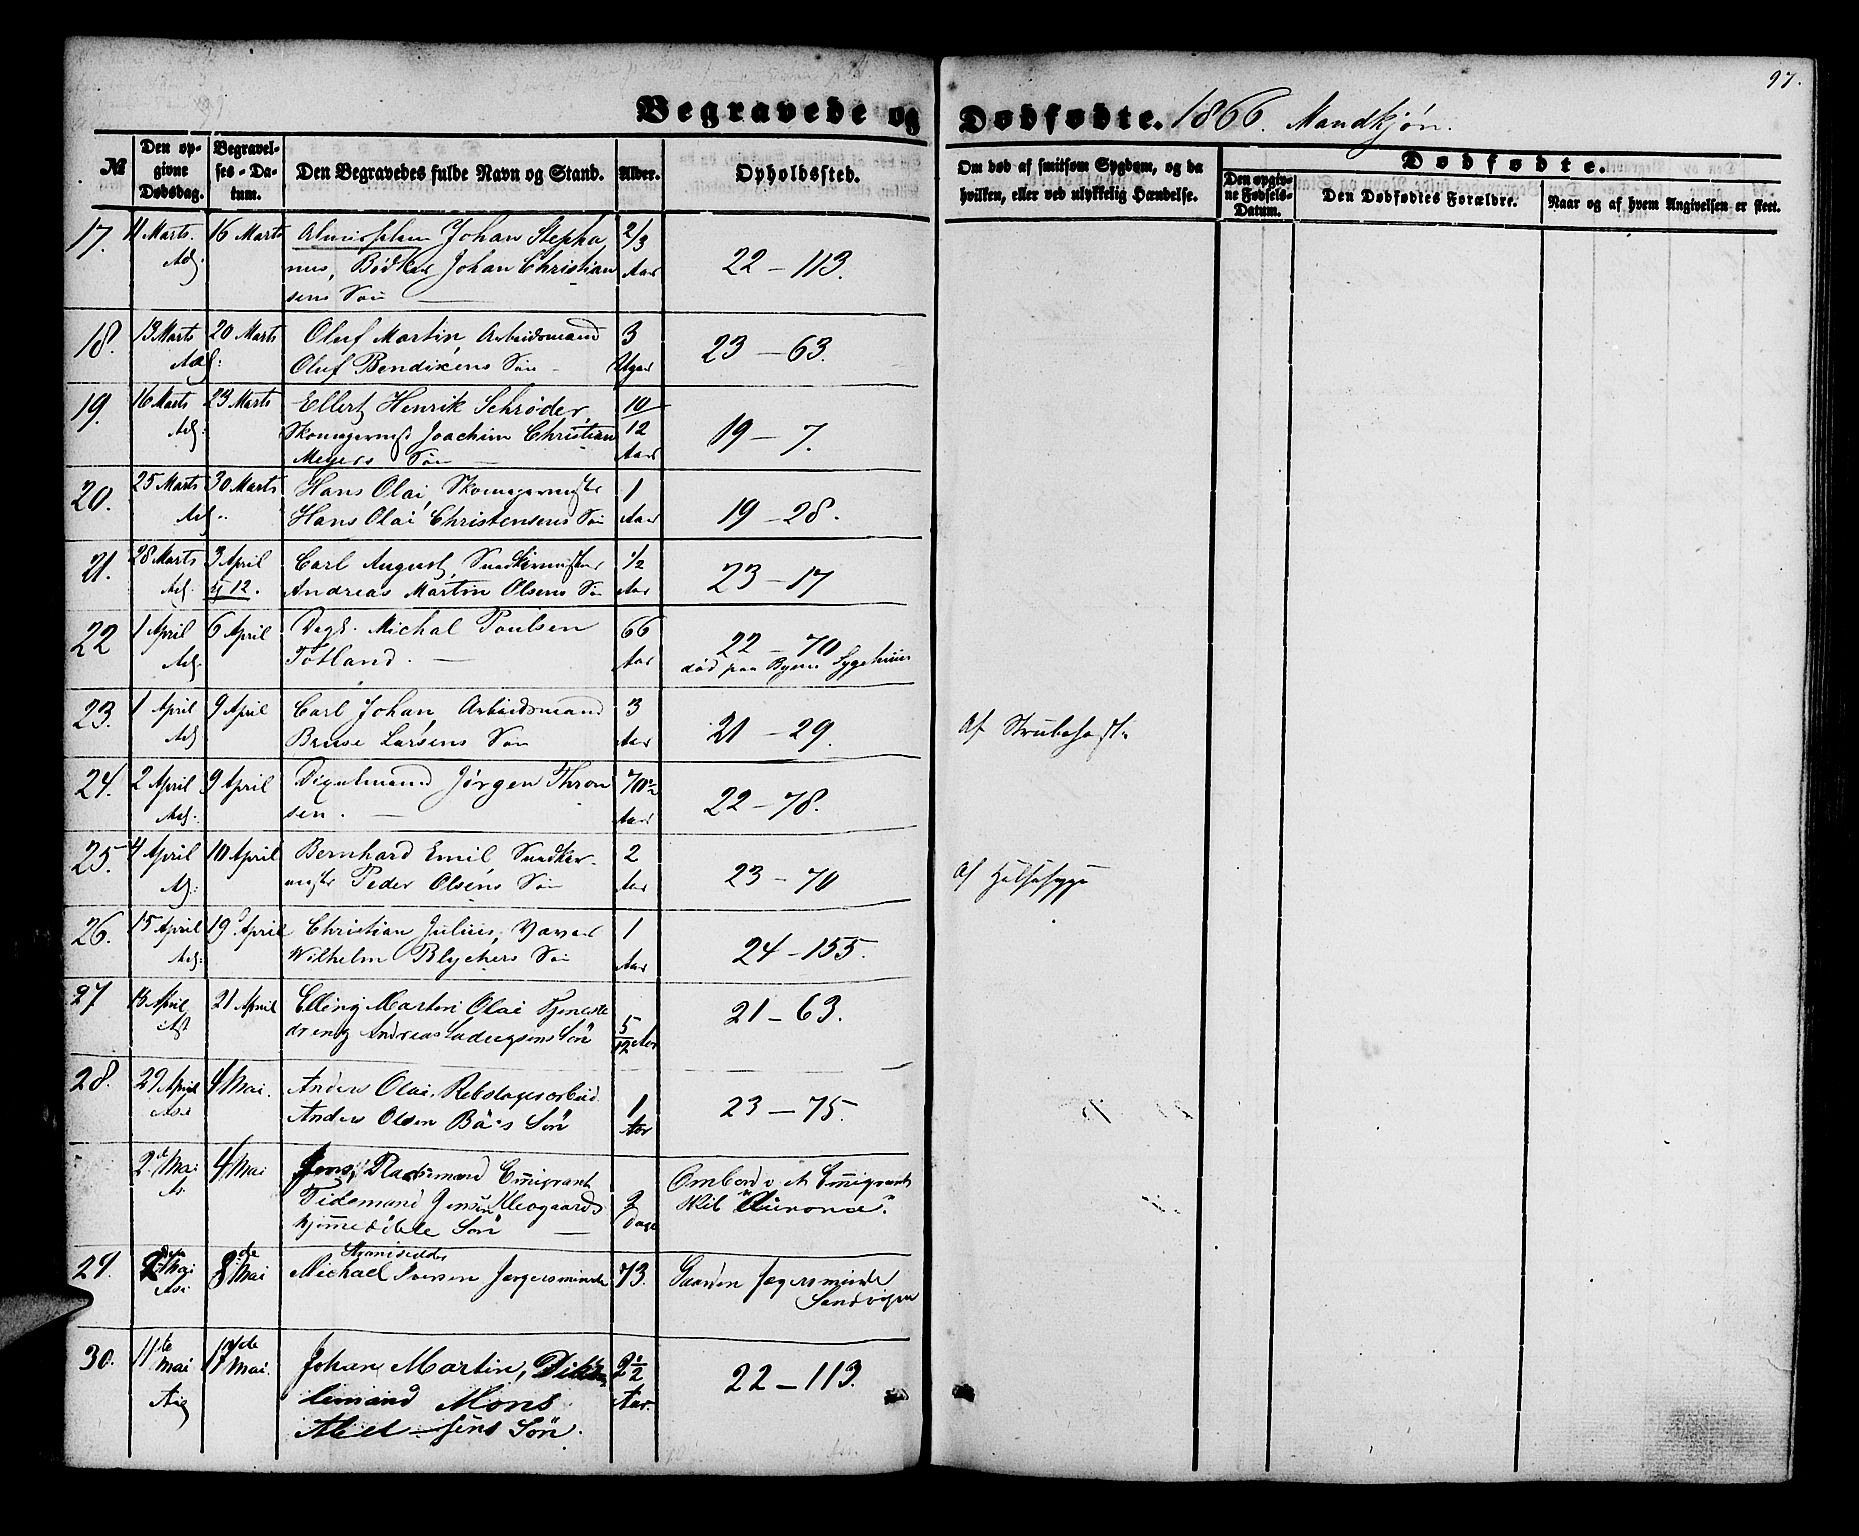 97.
Begravede og Dødfødte. 1866. Mandkjøn.
№
Den opgivne Dødsdag.
Begravelses-Datum.
Den Begravedes fulde Navn og Stand.
Alder.
Opholdssted.
Om død af smitsom Sygdom, og da hvilken, eller ved ulykkelig Hændelse.
Dødfødte.
Den opgivne Fødsels-Datum.
Den Dødfødtes Forældre.
Naar og af hvem Angivelsen er skeet.
17. 11 Marts. 16 Marts Johan Stepha 2/3
nus, Bødker Johan Christian Aar 22 – 113.
sens Søn
18. 13 Marts 20 Marts Oluf Martin, Arbeidsmand 3
Oluf Bendixens Søn Uger 23 – 63.
19. 16 Marts 23 Marts Ellert Henrik Schrøder, 10/12
Skomagermst Joachim Christian Aar 19 – 7.
Meyers Søn
20. 25 Marts 30 Marts Hans Olai, Skomagermster 1
Hans Olai Christensens Søn Aar 19 – 28.
21. 28 Marts 3 April Carl August, Snedkermester 1/2
12. Andreas Martin Olsens Søn Aar 23 – 17
22 1 April 6 April Dagk. Michal Poulsen 66 22 – 70
Totland. Aar død paa Byens Sygehuus
23. 1 April 9 April Carl Johan, Arbeidsmand 3
Bruse Larsens Søn Aar 21 – 29. Af Strubehoste
24. 2 April 9 April Dixelmand Jørgen Thron 70½
sen. Aar 22 – 78.
25. 4 April 10 April Bernhard Emil Snedker- 2
mester Peder Olsens Søn Aar 23 – 70 Af Halssyge
26. 15 April 19 April Christian Julius, Væver 1
Wilhelm Blychers Søn Aar 24 – 155.
27 13 April 21 April Elling Martin Olai Tjeneste
dreng Andreas Søn 5/12 Aar 21 – 63.
28. 29 April 4 Mai. Anders Olai, Rebslagerarbeid.
Anders Olsen Bø's Søn 1 Aar 23 – 75.
2de Mai 4 Mai Jens, Pladsmand Emigrant Ombord i Emigrant
Tidemand Jensen 2 Skib "Aurora".
hjemmedøbte Søn Dage
29. 2den Mai 8de Mai Michael Iversen Jægersminde 73. Gaarden Jægersminde
Sandvigen
30. 11te Mai 17de Mai. Johan Martin, Dixe 2½
lemand Mons Aar. 22 – 113.
sens Søn.